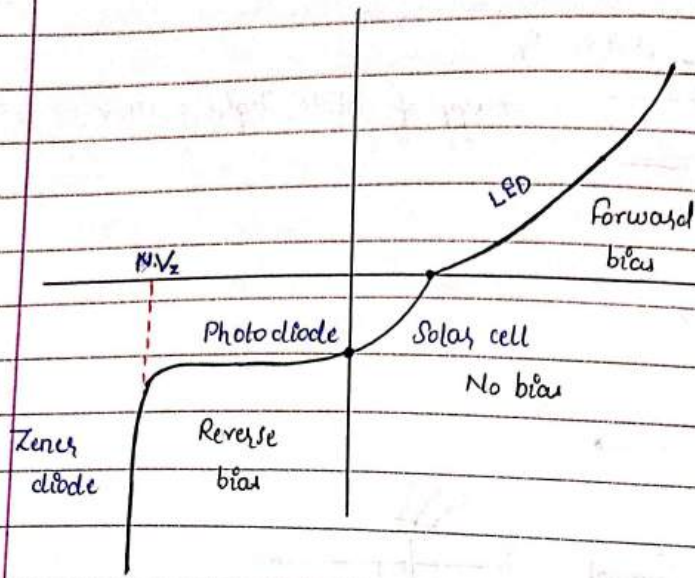 LED
Forward
bias
N.Vz
Photodiode
Solar cell
No bias
Zener
diode
Reverse
bias